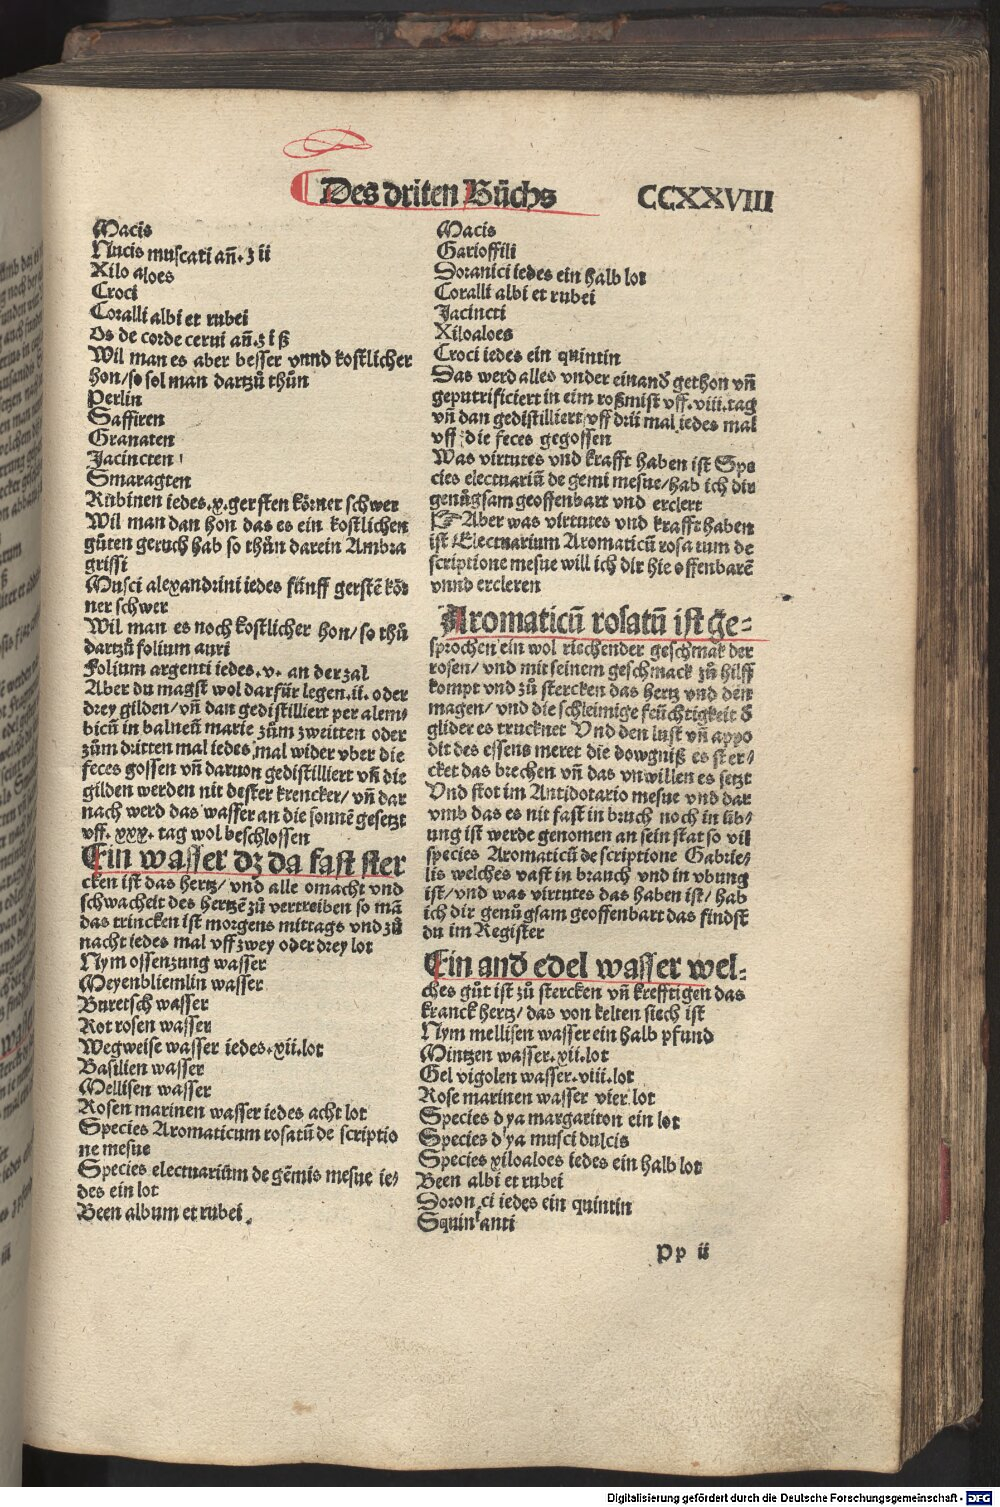 Des driten Bůchs CCXXVIII
Macis
Nucis muscati añ. ʒ ii
Xilo aloes
Croci
Coralli albi et rubei
Os de corde cerui añ. ʒ i ß
Wil man es aber besser vnnd kostlicher
hon/so sol man dartzů thůn
Perlin
Saffiren
Granaten
Jacincten
Smaragten
Rubinen iedes.x.gersten körner schwer
Wil man dan hon das es ein kostlichen
gůten geruch hab so thůn darein Ambra
grissi
Musci alexandrini iedes fünff gerstē kör
ner schwer
Wil man es noch kostlicher hon/so thů
dartzů folium auri
Folium argenti iedes.v. an der zal
Aber du magst wol darfür legen.ii. oder
drey gilden/vñ dan gedistilliert per alem-
bicū in balneū marie zům zweitten oder
zům dritten mal iedes mal wider vber die
feces gossen vñ daruon gedistilliert vñ die
gilden werden nit dester krencker/vñ dar
nach werd das wasser an die sonne gesetzt
vff. xxx. tag wol beschlossen
Ein wasser dz da fast ster
cken ist das hertz/vnd alle omacht vnd
schwacheit des hertzē zů vertreiben so mā
das trincken ist morgens mittags vnd zů
nacht iedes mal vff zwey oder drey lot
Nym ossenzung wasser
Meyenbliemlin wasser
Buretsch wasser
Rot rosen wasser
Wegweise wasser iedes.xii.lot
Basilien wasser
Mellisen wasser
Rosen marinen wasser iedes acht lot
Species Aromaticum rosatū de scriptio
ne mesue
Species electuariūm de gēmis mesue ie-
des ein lot
Been album et rubei.
Macis
Garioffili
Doranici iedes ein halb lot
Coralli albi et rubei
Jacincti
Xiloaloes
Croci iedes ein quintin
Das werd alles vnder einand gethon vñ
geputrificiert in eim roßmist vff.viii.tag
vñ dan gedistilliert vff drii mal iedes mal
vff die feces gegossen
Was virtutes vnd krafft haben ist Spe
cies electuariū de gemi mesue/hab ich dir
genůgsam geoffenbart vnd erclert
☞ Aber was virtutes vnd krafft haben
ist Electuarium Aromaticū rosa tum de
scriptione mesue will ich dir hie offenbarē
vnnd ercleren
Aromaticū rosatū ist ge-
sprochen ein wol riechender geschmak der
rosen/vnd mit seinem geschmack zů hilff
kompt vnd zů stercken das hertz vnd den
magen/vnd die schleimige feůchtigkeit d
glider es trucknet Vnd den lust vñ appo
dit des essens meret die dowgniß es ster-
cket das brechen vñ das vnwillen es setzt
Vnd stot im Antidotario mesue vnd dar
vmb das es nit fast in bruch noch in üb-
ung ist werde genomen an sein stat so vil
species Aromaticū de scriptione Gabrie-
lis welches vast in brauch vnd in vbung
ist/vnd was virtutes das haben ist/hab
ich dir genůgsam geoffenbart das findst
du im Register
Ein and edel wasser wel-
ches gůt ist zů stercken vñ krefftigen das
kranck hertz/das von kelten siech ist
Nym mellisen wasser ein halb pfund
Mintzen wasser.xii.lot
Gel vigolen wasser.viii.lot
Rose marinen wasser vier lot
Species dya margariton ein lot
Species dya musci dulcis
Species xiloaloes iedes ein halb lot
Been albi et rubei
Doronici iedes ein quintin
Squinanti
Pp ii
Digitalisierung gefördert durch die Deutsche Forschungsgemeinschaft - DFG